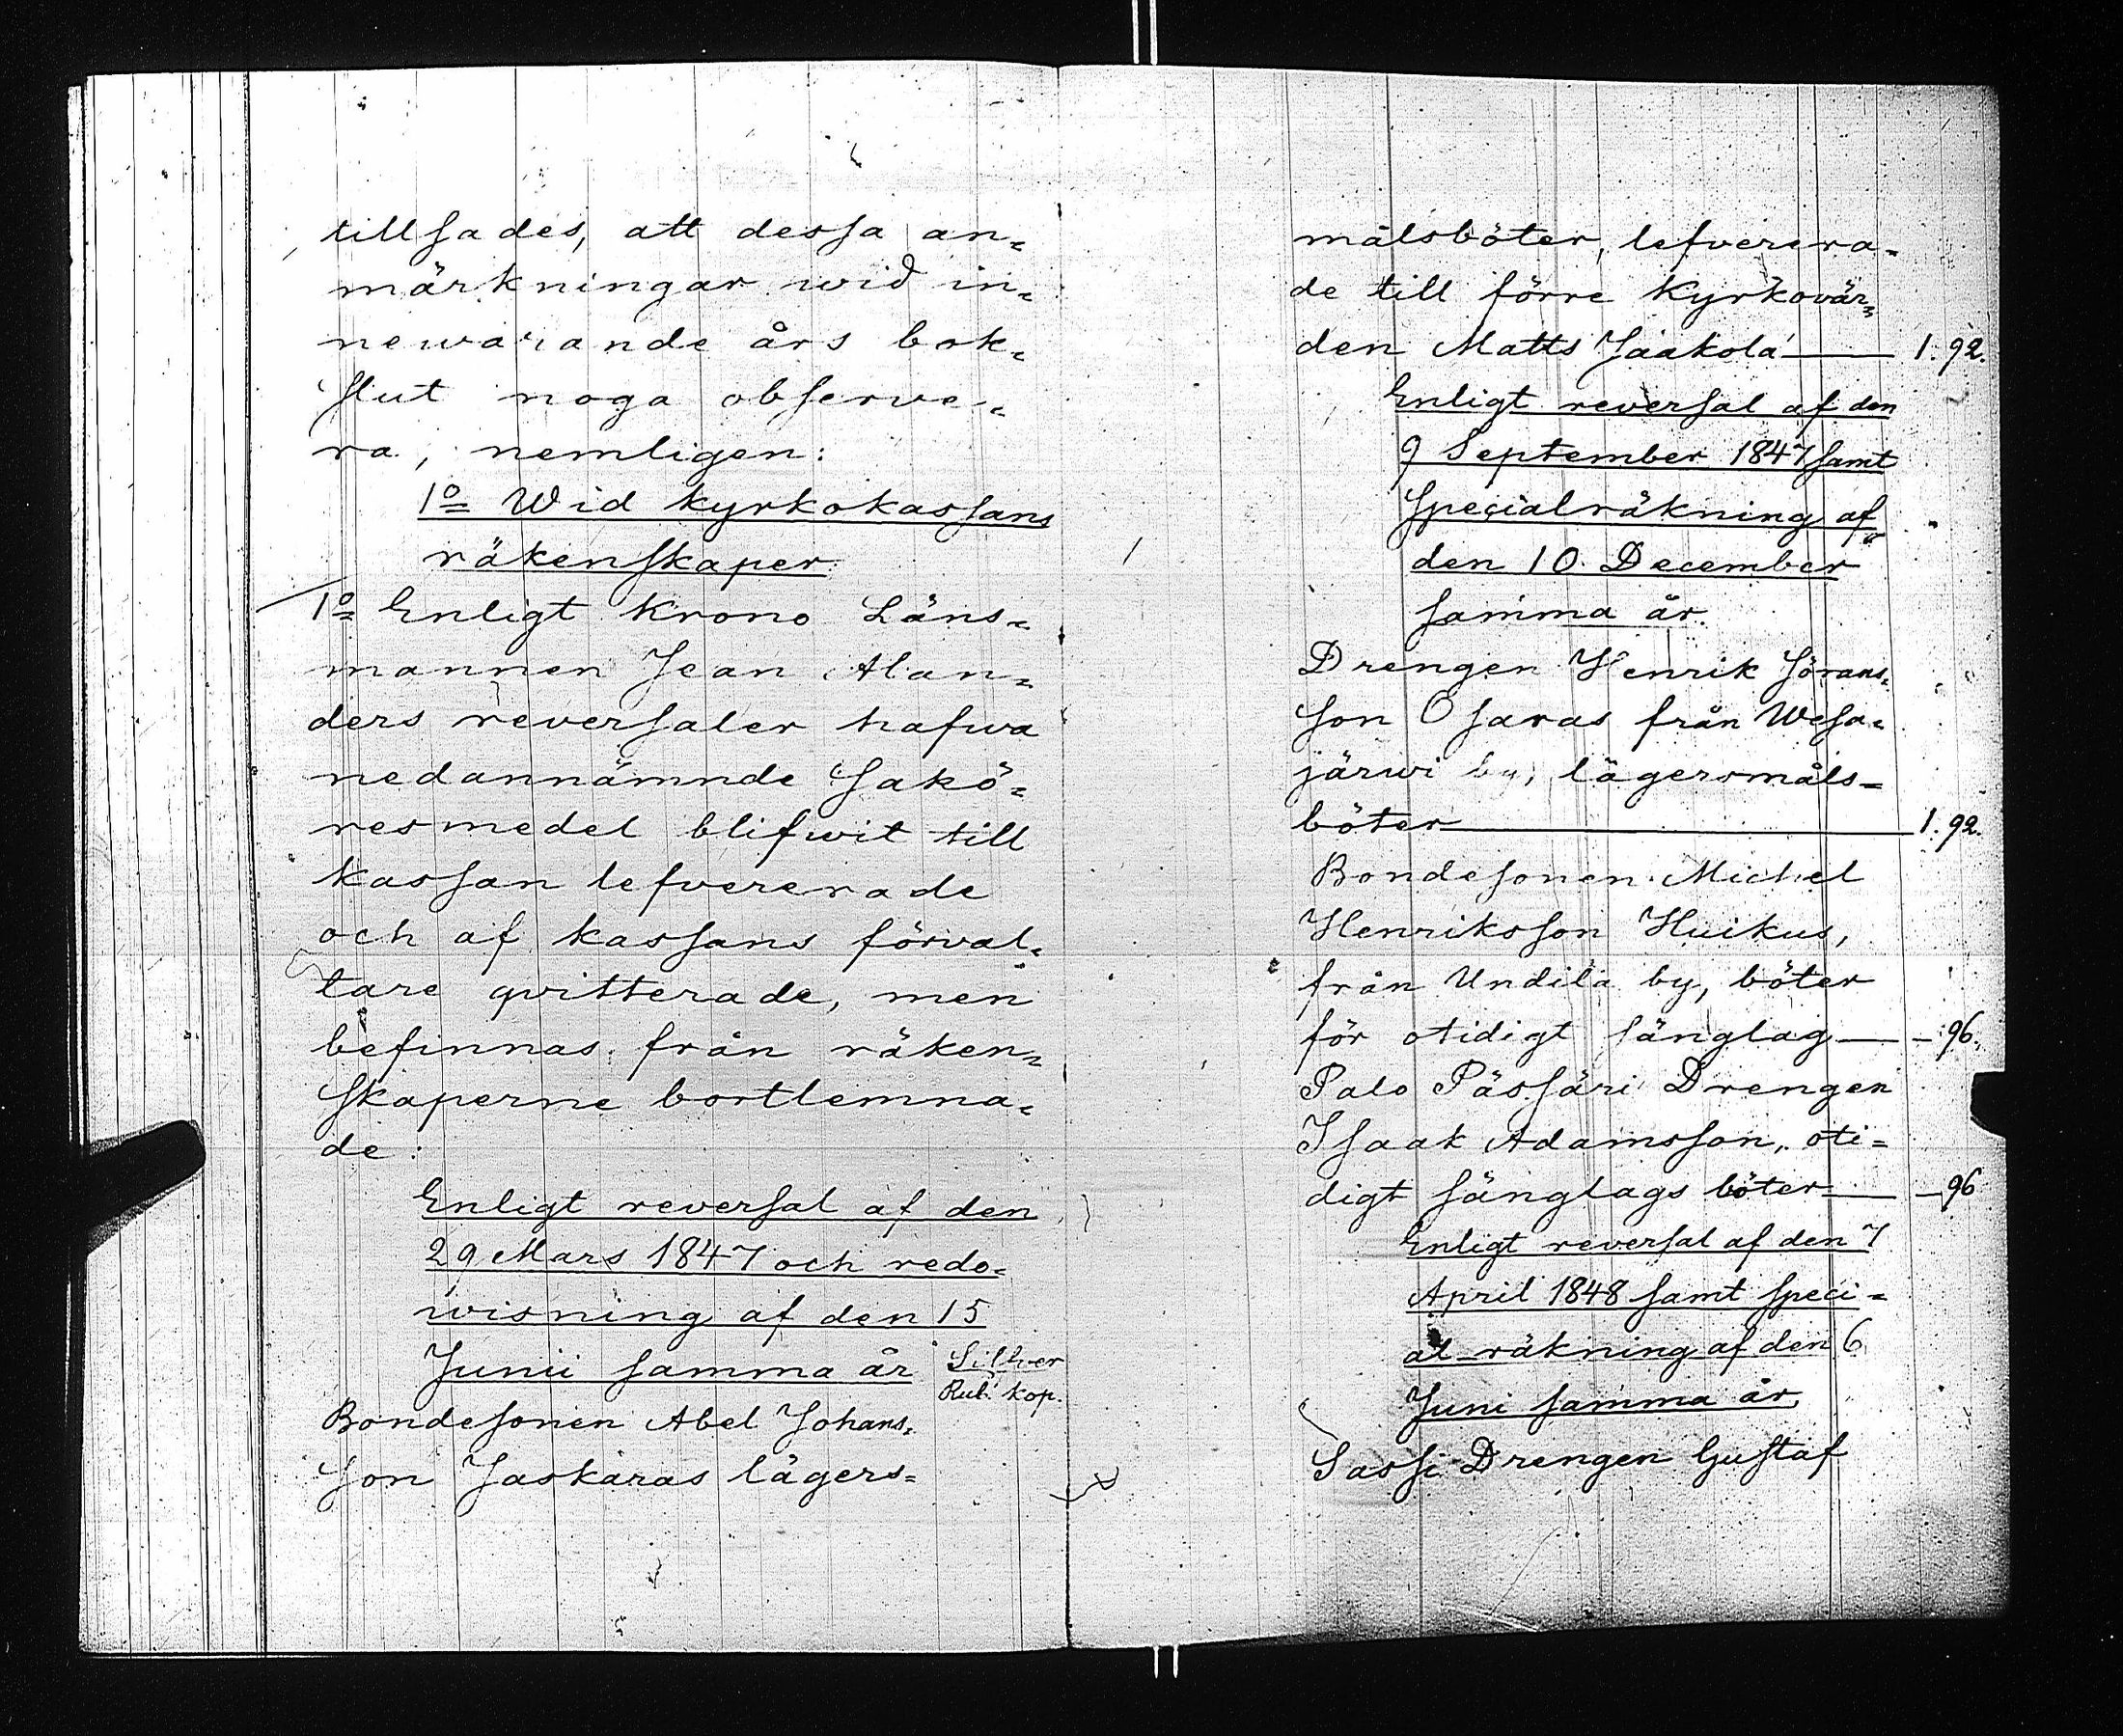 tillsades, att dessa an=
märkningar wid in=
newarande års bok=
slut noga observe=
ra, nemligen:
1o Wid kyrkokassans
räkenskaper
1o Enligt Krono Läns=
mannen Jean Alan=
ders reversaler hafwa
nedannämnde Sakö=
resmedel blifwit till
kassan lefvererade
och af kassans förval=
tare qvitterade, men
befinnas från räken=
skaperne bortlemna=
de:
Enligt reversal af den
29 Mars 1847 och redo=
wisning af den 15
Junii samma år
Silfver
Rub. kop.
Bondesonen Abel Johans=
son Jaskaras lägers=
målsböter, lefverera=
de till förre Kyrkovär=
den Matts Jaakola — 1. 92.
Enligt reversal af den
9 September 1847 samt
Specialräkning af
den 10 December
samma år.
Drengen Henrik Görans=
son Osaras från Wesa=
järwi by, lägersmåls=
böter — 1. 92.
Bondesonen Michel
Henriksson Huikus,
från Undila by, böter
för otidigt sänglag — -. 96.
Palo Pässäri Drengen
Isaak Adamsson, oti=
digt sänglags böter — - 96
Enligt reversal af den 7
April 1848 samt speci=
al räkning af den 6
Juni samma år
Sassi Drengen Gustaf